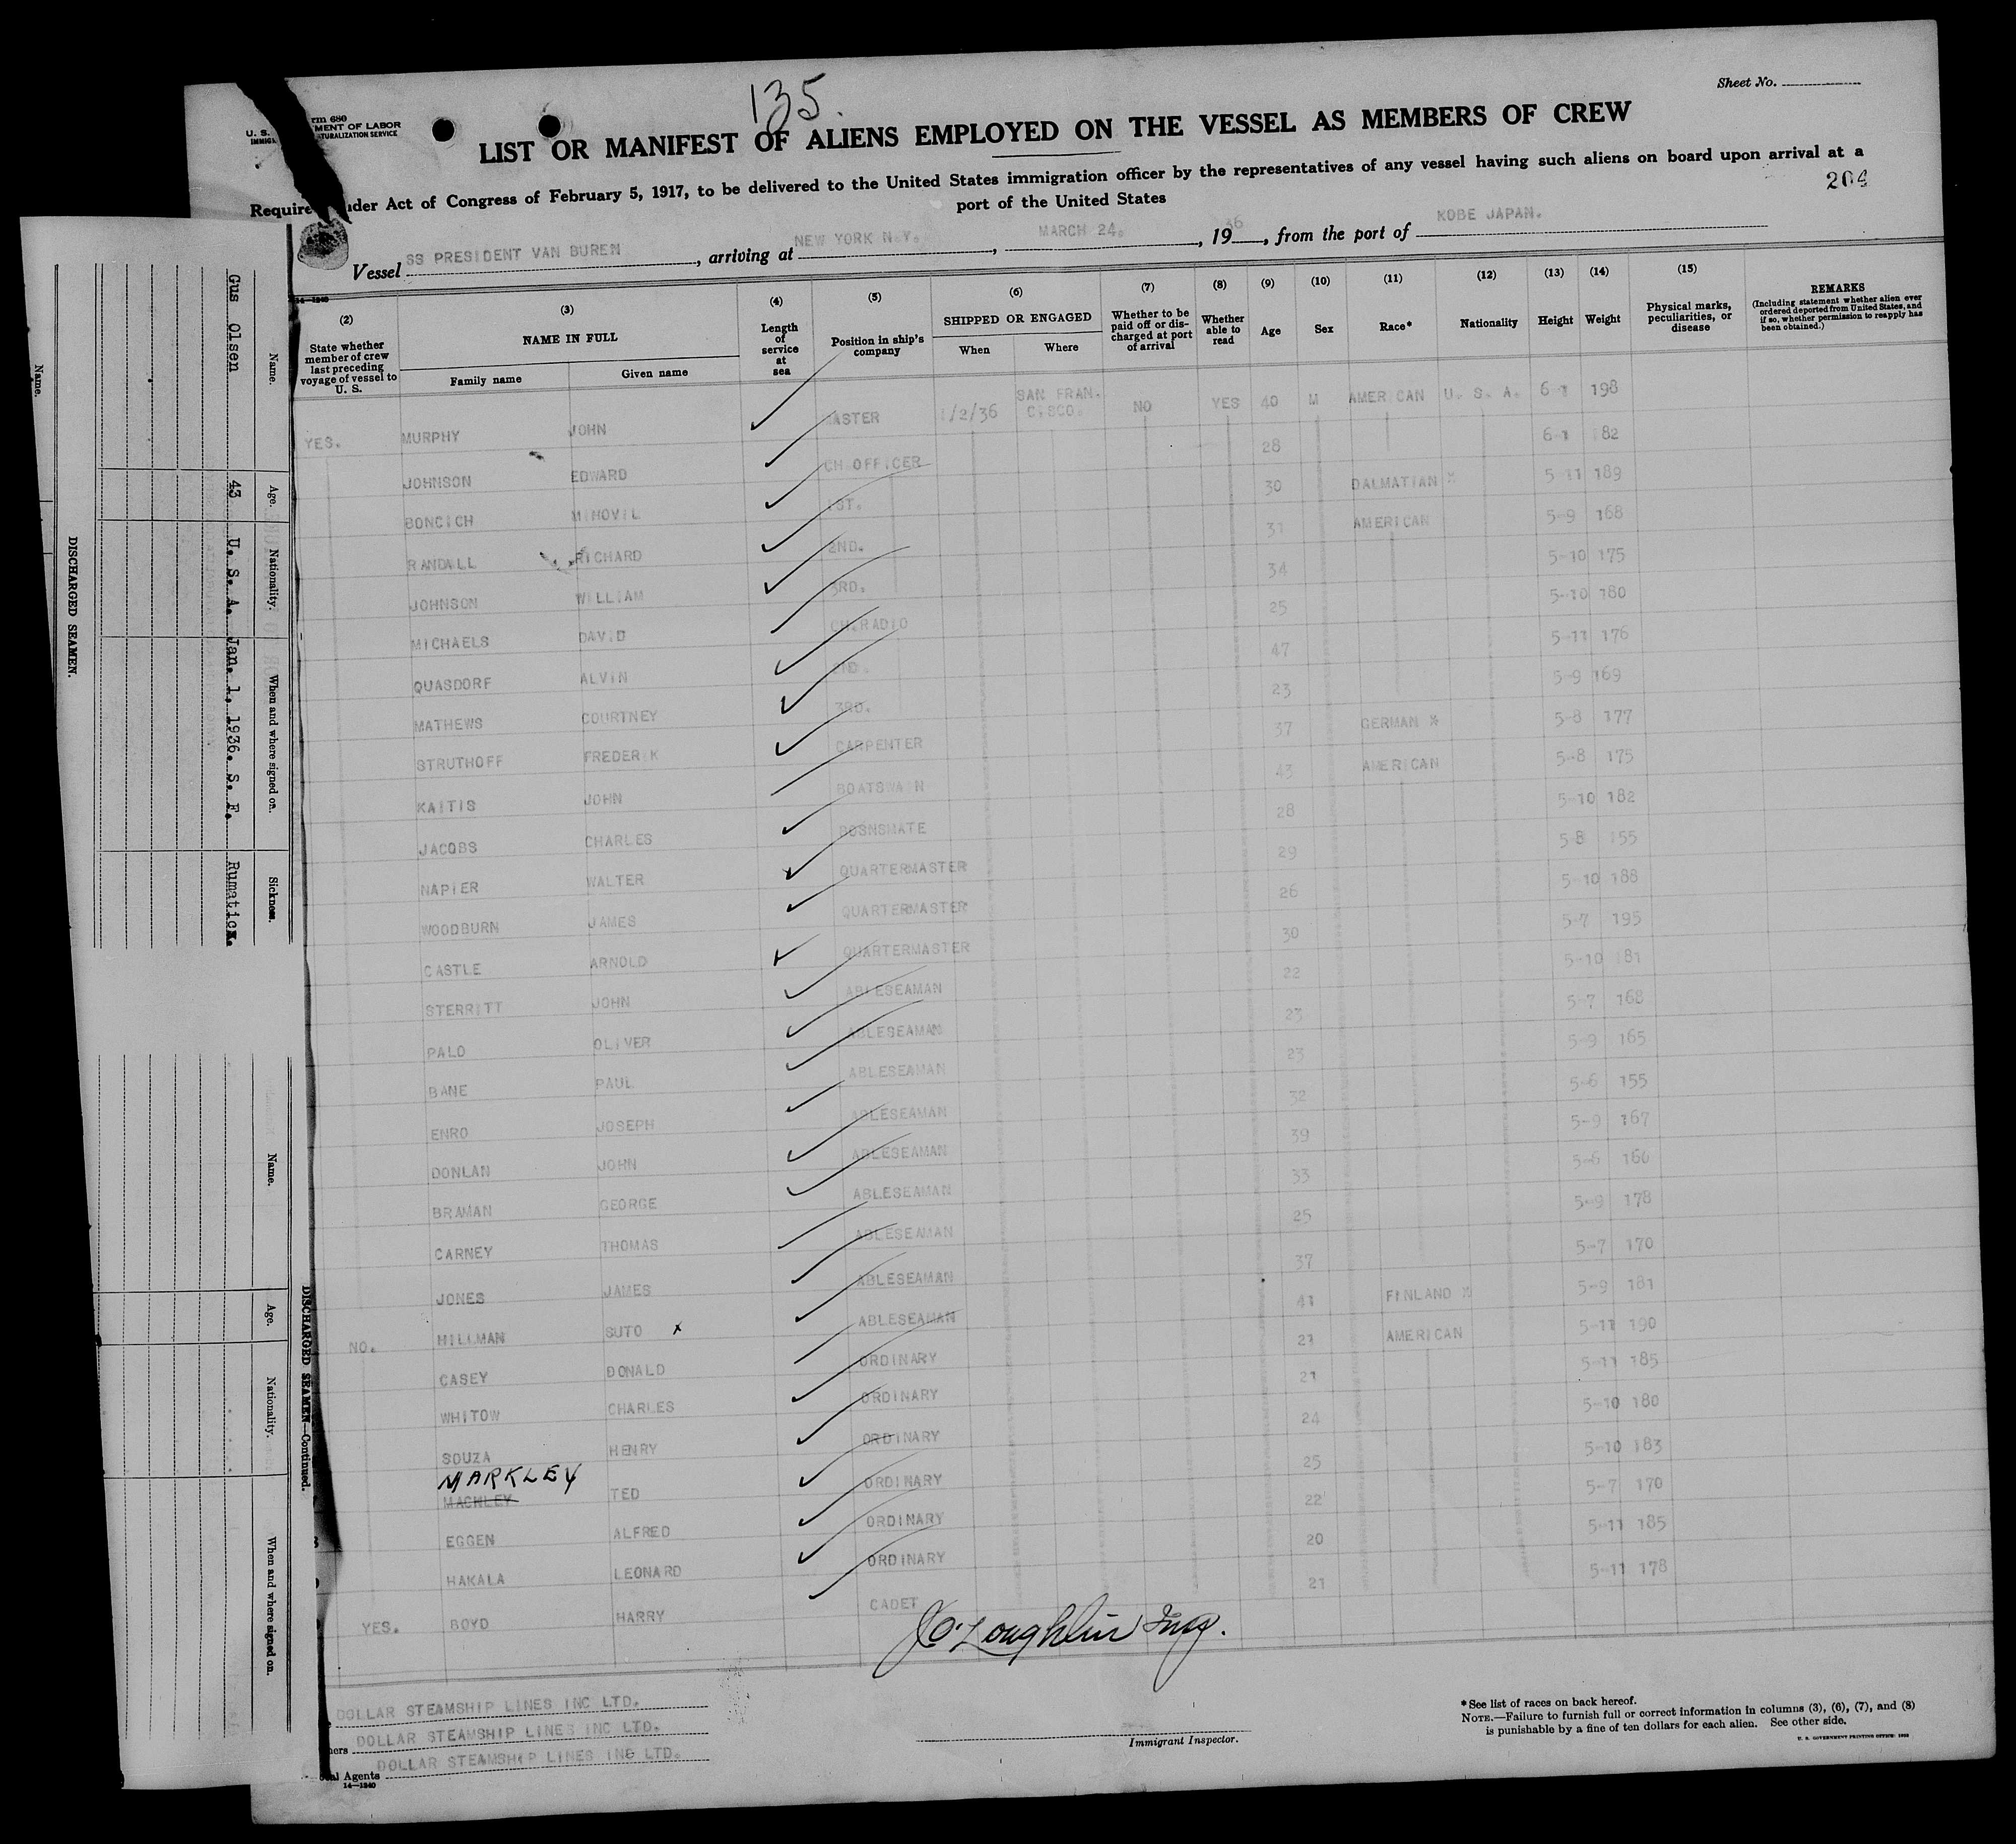 135.
Sheet No.
U. S.
rm 680
MENT OF LABOR
IMMIG
TURALIZATION SERVICE
LIST OR MANIFEST OF ALIENS EMPLOYED ON THE VESSEL AS MEMBERS OF CREW
Require der Act of Congress of February 5, 1917, to be delivered to the United States immigration officer by the representatives of any vessel having such aliens on board upon arrival at a
port of the United States
204
Vessel SS PRESIDENT VAN BUREN, arriving at NEW YORK N.Y., MARCH 24., 1936, from the port of KOBE JAPAN.
(2) State whether member of crew last preceding voyage of vessel to U. S.
(3) NAME IN FULL
Family name
Given name
(4) Length of service at sea
(5) Position in ship's company
(6) SHIPPED OR ENGAGED
When
Where
(7) Whether to be paid off or discharged at port of arrival
(8) Whether able to read
(9) Age
(10) Sex
(11) Race*
(12) Nationality
(13) Height
(14) Weight
(15) Physical marks, peculiarities, or disease
REMARKS
(Including statement whether alien ever ordered deported from United States, and if so, whether permission to reapply has been obtained.)
YES. MURPHY JOHN ASTER 1/2/36 SAN FRAN. CISCO. NO YES 40 M AMERICAN U. S. A. 6-1 198
JOHNSON EDWARD CH.OFFICER 28 6-1 182
BONCICH MIHOVIL 1ST. 30 DALMATIAN X 5-11 189
RANDALL RICHARD 2ND. 31 AMERICAN 5-9 168
JOHNSON WILLIAM 3RD. 34 5-10 175
MICHAELS DAVID CH.RADIO 25 5-10 180
QUASDORF ALVIN 2ND. 47 5-11 176
MATHEWS COURTNEY 3RD. 23 5-9 169
STRUTHOFF FREDERIK CARPENTER 37 GERMAN X 5-8 177
KAITIS JOHN BOATSWAIN 43 AMERICAN 5-8 175
JACOBS CHARLES BOSNSMATE 28 5-10 182
NAPIER WALTER QUARTERMASTER 29 5-8 155
WOODBURN JAMES QUARTERMASTER 26 5-10 188
CASTLE ARNOLD QUARTERMASTER 30 5-7 195
STERRITT JOHN ABLESEAMAN 22 5-10 181
PALO OLIVER ABLESEAMAN 23 5-7 168
BANE PAUL ABLESEAMAN 23 5-9 165
ENRO JOSEPH ABLESEAMAN 32 5-6 155
DONLAN JOHN ABLESEAMAN 39 5-9 167
BRAMAN GEORGE ABLESEAMAN 33 5-6 160
CARNEY THOMAS ABLESEAMAN 25 5-9 178
JONES JAMES ABLESEAMAN 37 5-7 170
NO. HILLMAN SUTO X ABLESEAMAN 41 FINLAND X 5-9 181
CASEY DONALD ORDINARY 21 AMERICAN 5-11 190
WHITOW CHARLES ORDINARY 21 5-11 185
SOUZA HENRY ORDINARY 24 5-10 180
MARKLEY
MACHLEY TED ORDINARY 25 5-10 183
EGGEN ALFRED ORDINARY 22 5-7 170
HAKALA LEONARD ORDINARY 20 5-11 185
YES. BOYD HARRY CADET 21 5-11 178
J O'Loughlin Insp.
DOLLAR STEAMSHIP LINES INC LTD.
ners DOLLAR STEAMSHIP LINES INC LTD.
al Agents DOLLAR STEAMSHIP LINES INC LTD.
14—1240
Immigrant Inspector.
*See list of races on back hereof.
NOTE.—Failure to furnish full or correct information in columns (3), (6), (7), and (8)
is punishable by a fine of ten dollars for each alien. See other side.
U. S. GOVERNMENT PRINTING OFFICE
DISCHARGED SEAMEN.
Name.
Name. Age. Nationality. When and where signed on. Sickness.
Gus Olsen 43 U. S. A. Jan. 1, 1936. S. F. Rumatics.
DISCHARGED SEAMEN—Continued.
Name. Age. Nationality. When and where signed on.